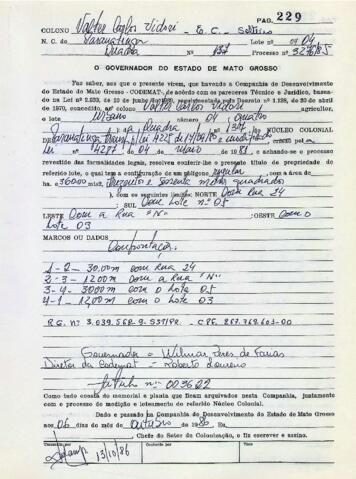 PAG. 229
COLONO Valter Carlos Vidori - E. C. - Solteiro
N. C. de Paranatinga Lote nº 04
Quadra Nº 137 Processo nº 3276/85
O GOVERNADOR DO ESTADO DE MATO GROSSO
Faz saber, aos que o presente virem, que havendo a Companhia de Desenvolvimento
do Estado de Mato Grosso - CODEMAT, de acordo com os pareceres Técnico e Jurídico, baseado
na Lei nº 2.233, de de de regulamentada pelo Decreto nº 1.138, de 30 de abril
de 1970, concedido ao colono Valter Carlos Vidori o
o lote Urbano número 04 (quatro
da Quadra nº 137 NÚCLEO COLONIAL
DE Paranatinga criado pela
Lei nº 4287 de de maio de 1981, e achando-se o processo
revestido das formalidades legais, resolveu conferir-lhe o presente título de propriedade do
referido lote, o qual tem a configuração de um polígono regular com a área de
ha. 36000 mts2. Trezentos e sessenta metros quadrados
e com os seguintes limites: NORTE Com Rua 24
; SUL Com Lote nº 05
LESTE Com a Rua "N" ; OESTE Com o
Lote 03
MARCOS OU DADOS
Confrontaçoes
1 - 2 - 30,00m com Rua 24
2 - 3 - 12,00m com a Rua "N"
3 - 4 - 30,00m com o Lote 05
4 - 1 - 12,00m com o Lote 03
R.G. nº CPF.
Governador = Wilmar Peres de Farias
Diretor da Codemat = Roberto Loureiro
nº 003602
Como tudo consta do memorial e planta que ficam arquivados nesta Companhia, juntamente
com o processo de medição e loteamento do referido Núcleo Colonial.
Dado e passado na Companhia de Desenvolvimento do Estado de Mato Grosso
aos 06 dias do mês de outubro de 1986 Eu,
Chefe do Setor da Colonização, o fiz escrever e assino.
13/10/86